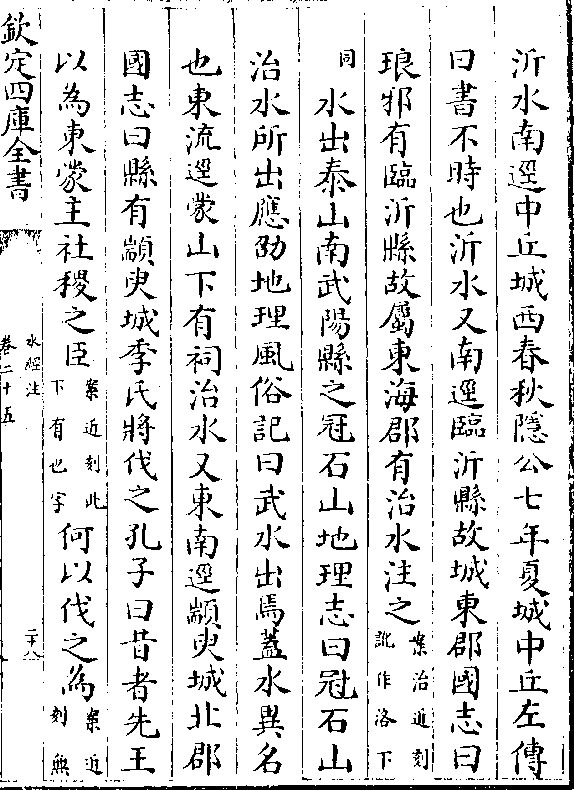 沂水南逕中丘城西春秋隱公七年夏城中丘左傳
曰書不時也沂水又南逕臨沂縣故城東郡國志曰
琅邪有臨沂縣故屬東海郡有治水注之案治近刻訛作洛下
同水出泰山南武陽縣之冠石山地理志曰冠石山
治水所出應劭地理風俗記曰武水出焉蓋水異名
也東流逕蒙山下有祠治水又東南逕顓臾城北郡
國志曰縣有顓臾城季氏將伐之孔子曰昔者先王
以為東蒙主社稷之臣案近刻此下有也字何以伐之為案近刻無
欽定四庫全書
水經注
卷二十五
二十八